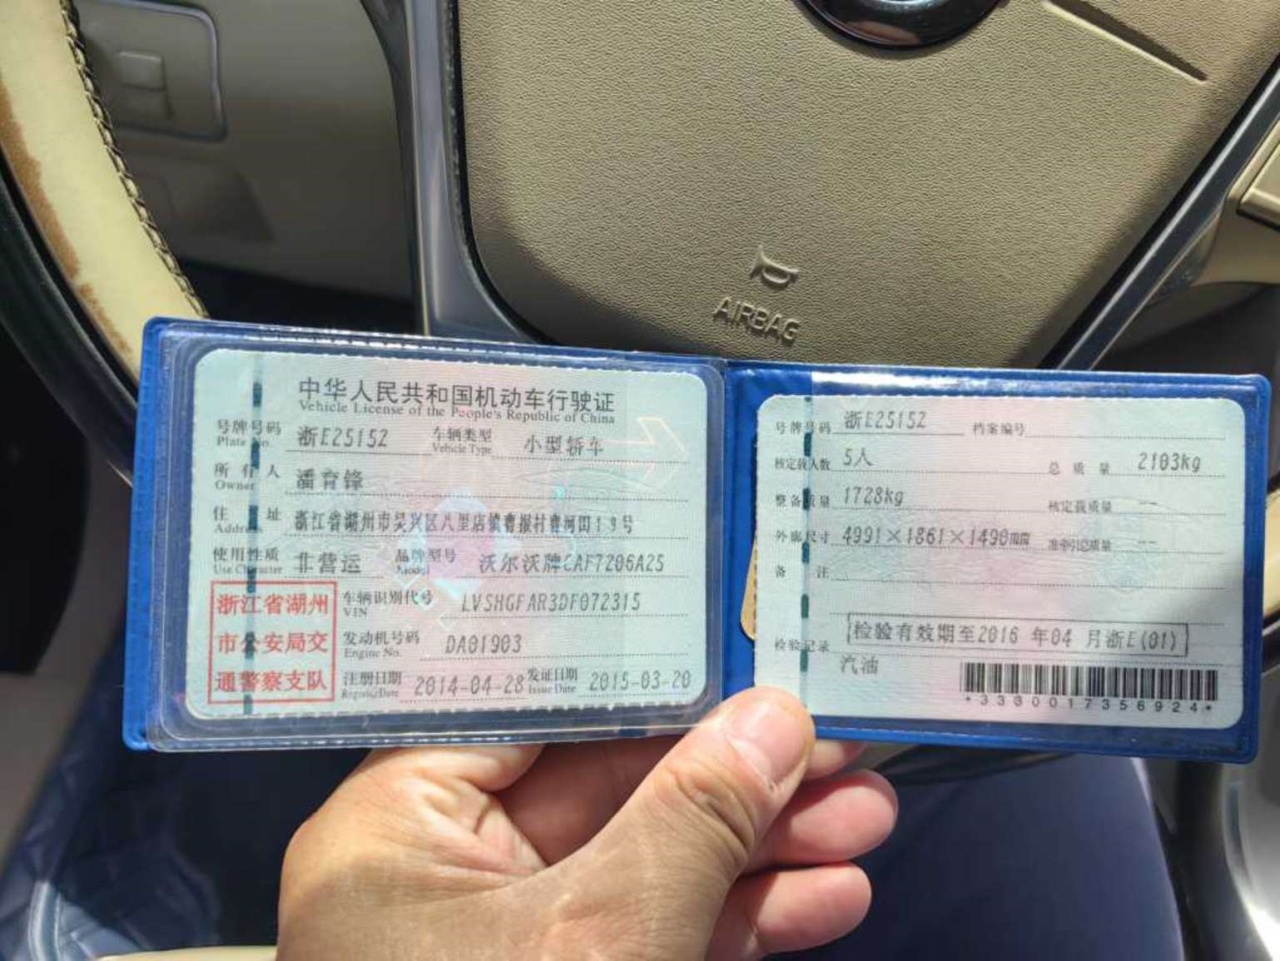 AIRBAG
中华人民共和国机动车行驶证
Vehicle License of the People's Republic of China
号牌号码 浙E2515Z 车辆类型 小型轿车
Plate No. Vehicle Type
所有人 潘育锋
Owner
住址 浙江省湖州市吴兴区八里店镇曹报村曹河田19号
Address
使用性质 非营运 品牌型号 沃尔沃牌CAF7206A25
Use Character Model
浙江省湖州
市公安局交
通警察支队
车辆识别代号 LVSHGFAR3DF072315
VIN
发动机号码 DA01903
Engine No.
注册日期 2014-04-28 发证日期 2015-03-20
Register Date Issue Date
号牌号码 浙E2515Z 档案编号
核定载人数 5人 总质量 2103kg
整备质量 1728kg 核定载质量 --
外廓尺寸 4991×1861×1490mm 准牵引总质量 --
备注
检验有效期至2016年04月浙E(01)
检验记录
汽油
*3330017356924*